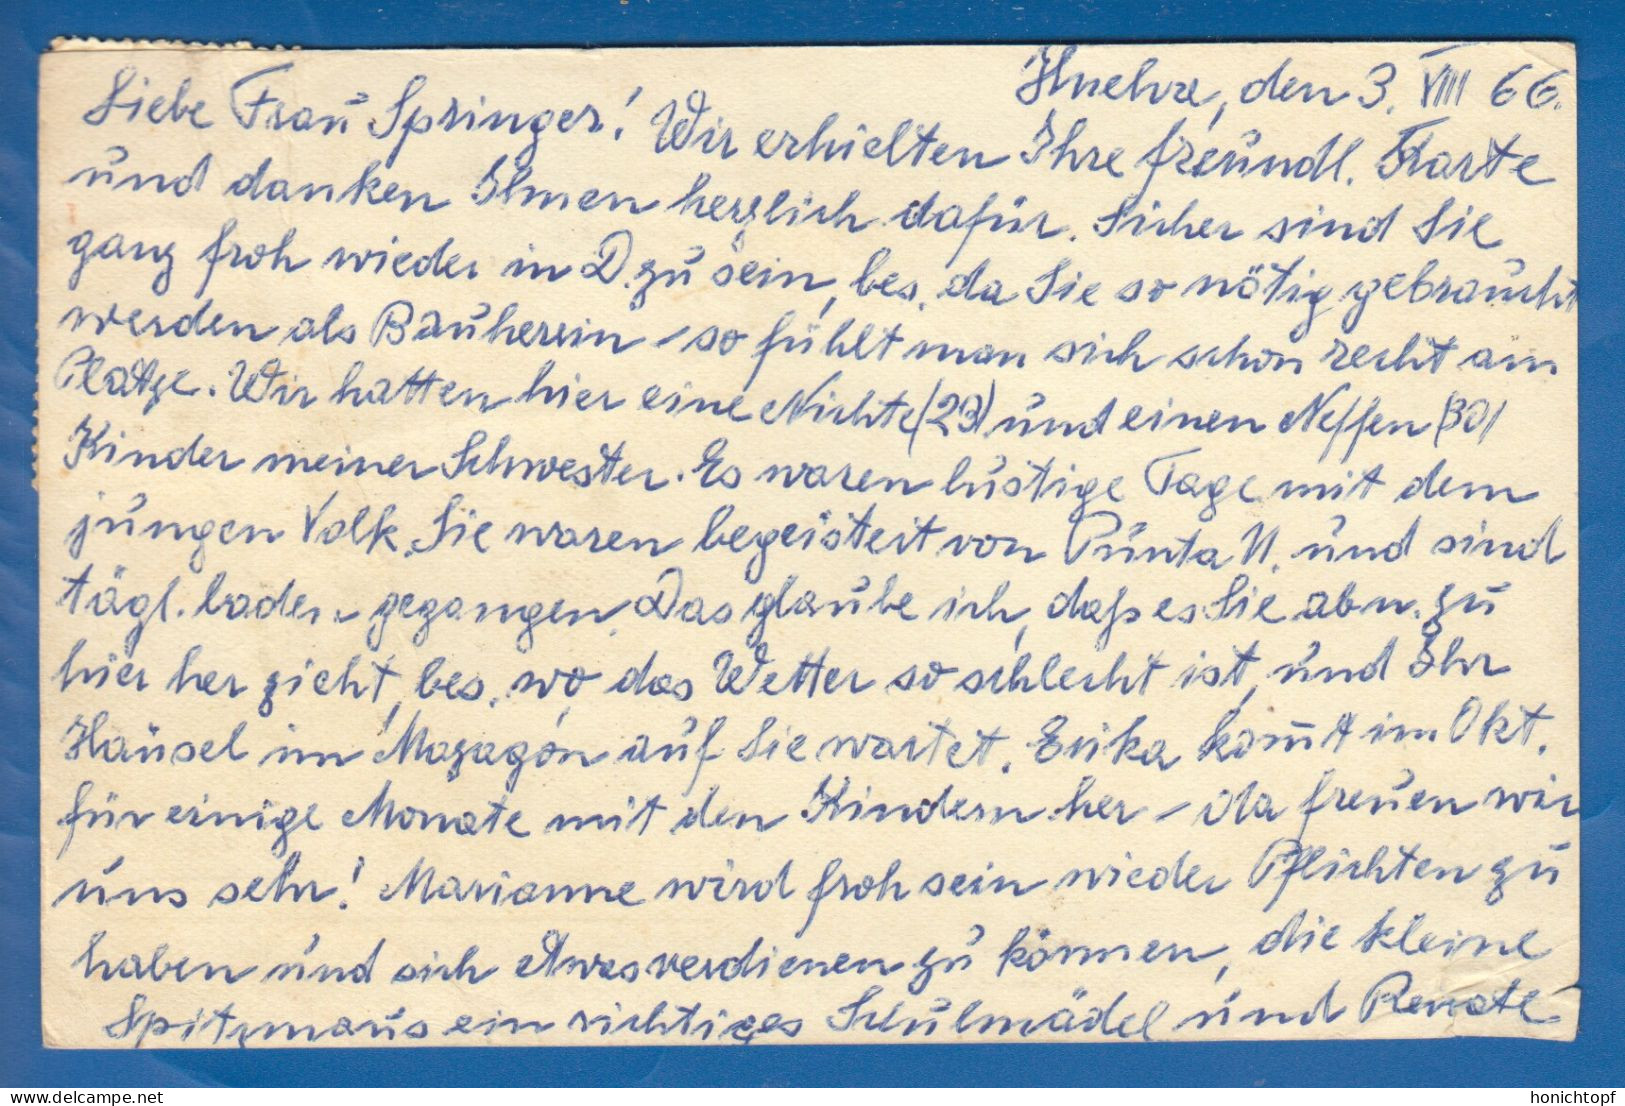 Huelva, den 3. VIII 66.
Liebe Frau Springer! Wir erhielten Ihre freundl. Karte
und danken Ihnen herzlich dafür. Sicher sind Sie
ganz froh wieder in D. zu sein, bes. da Sie so nötig gebraucht
werden als Bauherrin – so fühlt man sich schon recht am
Platze. Wir hatten hier eine Nichte (23) und einen Neffen (30)
Kinder meiner Schwester. Es waren lustige Tage mit dem
jungen Volk. Sie waren begeistert von Punta U. und sind
tägl. baden gegangen. Das glaube ich, daß es Sie zu
hier her zieht, bes. wo das Wetter so schlecht ist, und Ihr
Häusel im Mazagón auf Sie wartet. Erika kommt im Okt.
für einige Monate mit den Kindern her – da freuen wir
uns sehr! Marianne wird froh sein wieder Pflichten zu
haben und sich etwas verdienen zu können, die kleine
Spitzmaus ein richtiges Schulmädel und Renate
delcampe.net
honichtopf